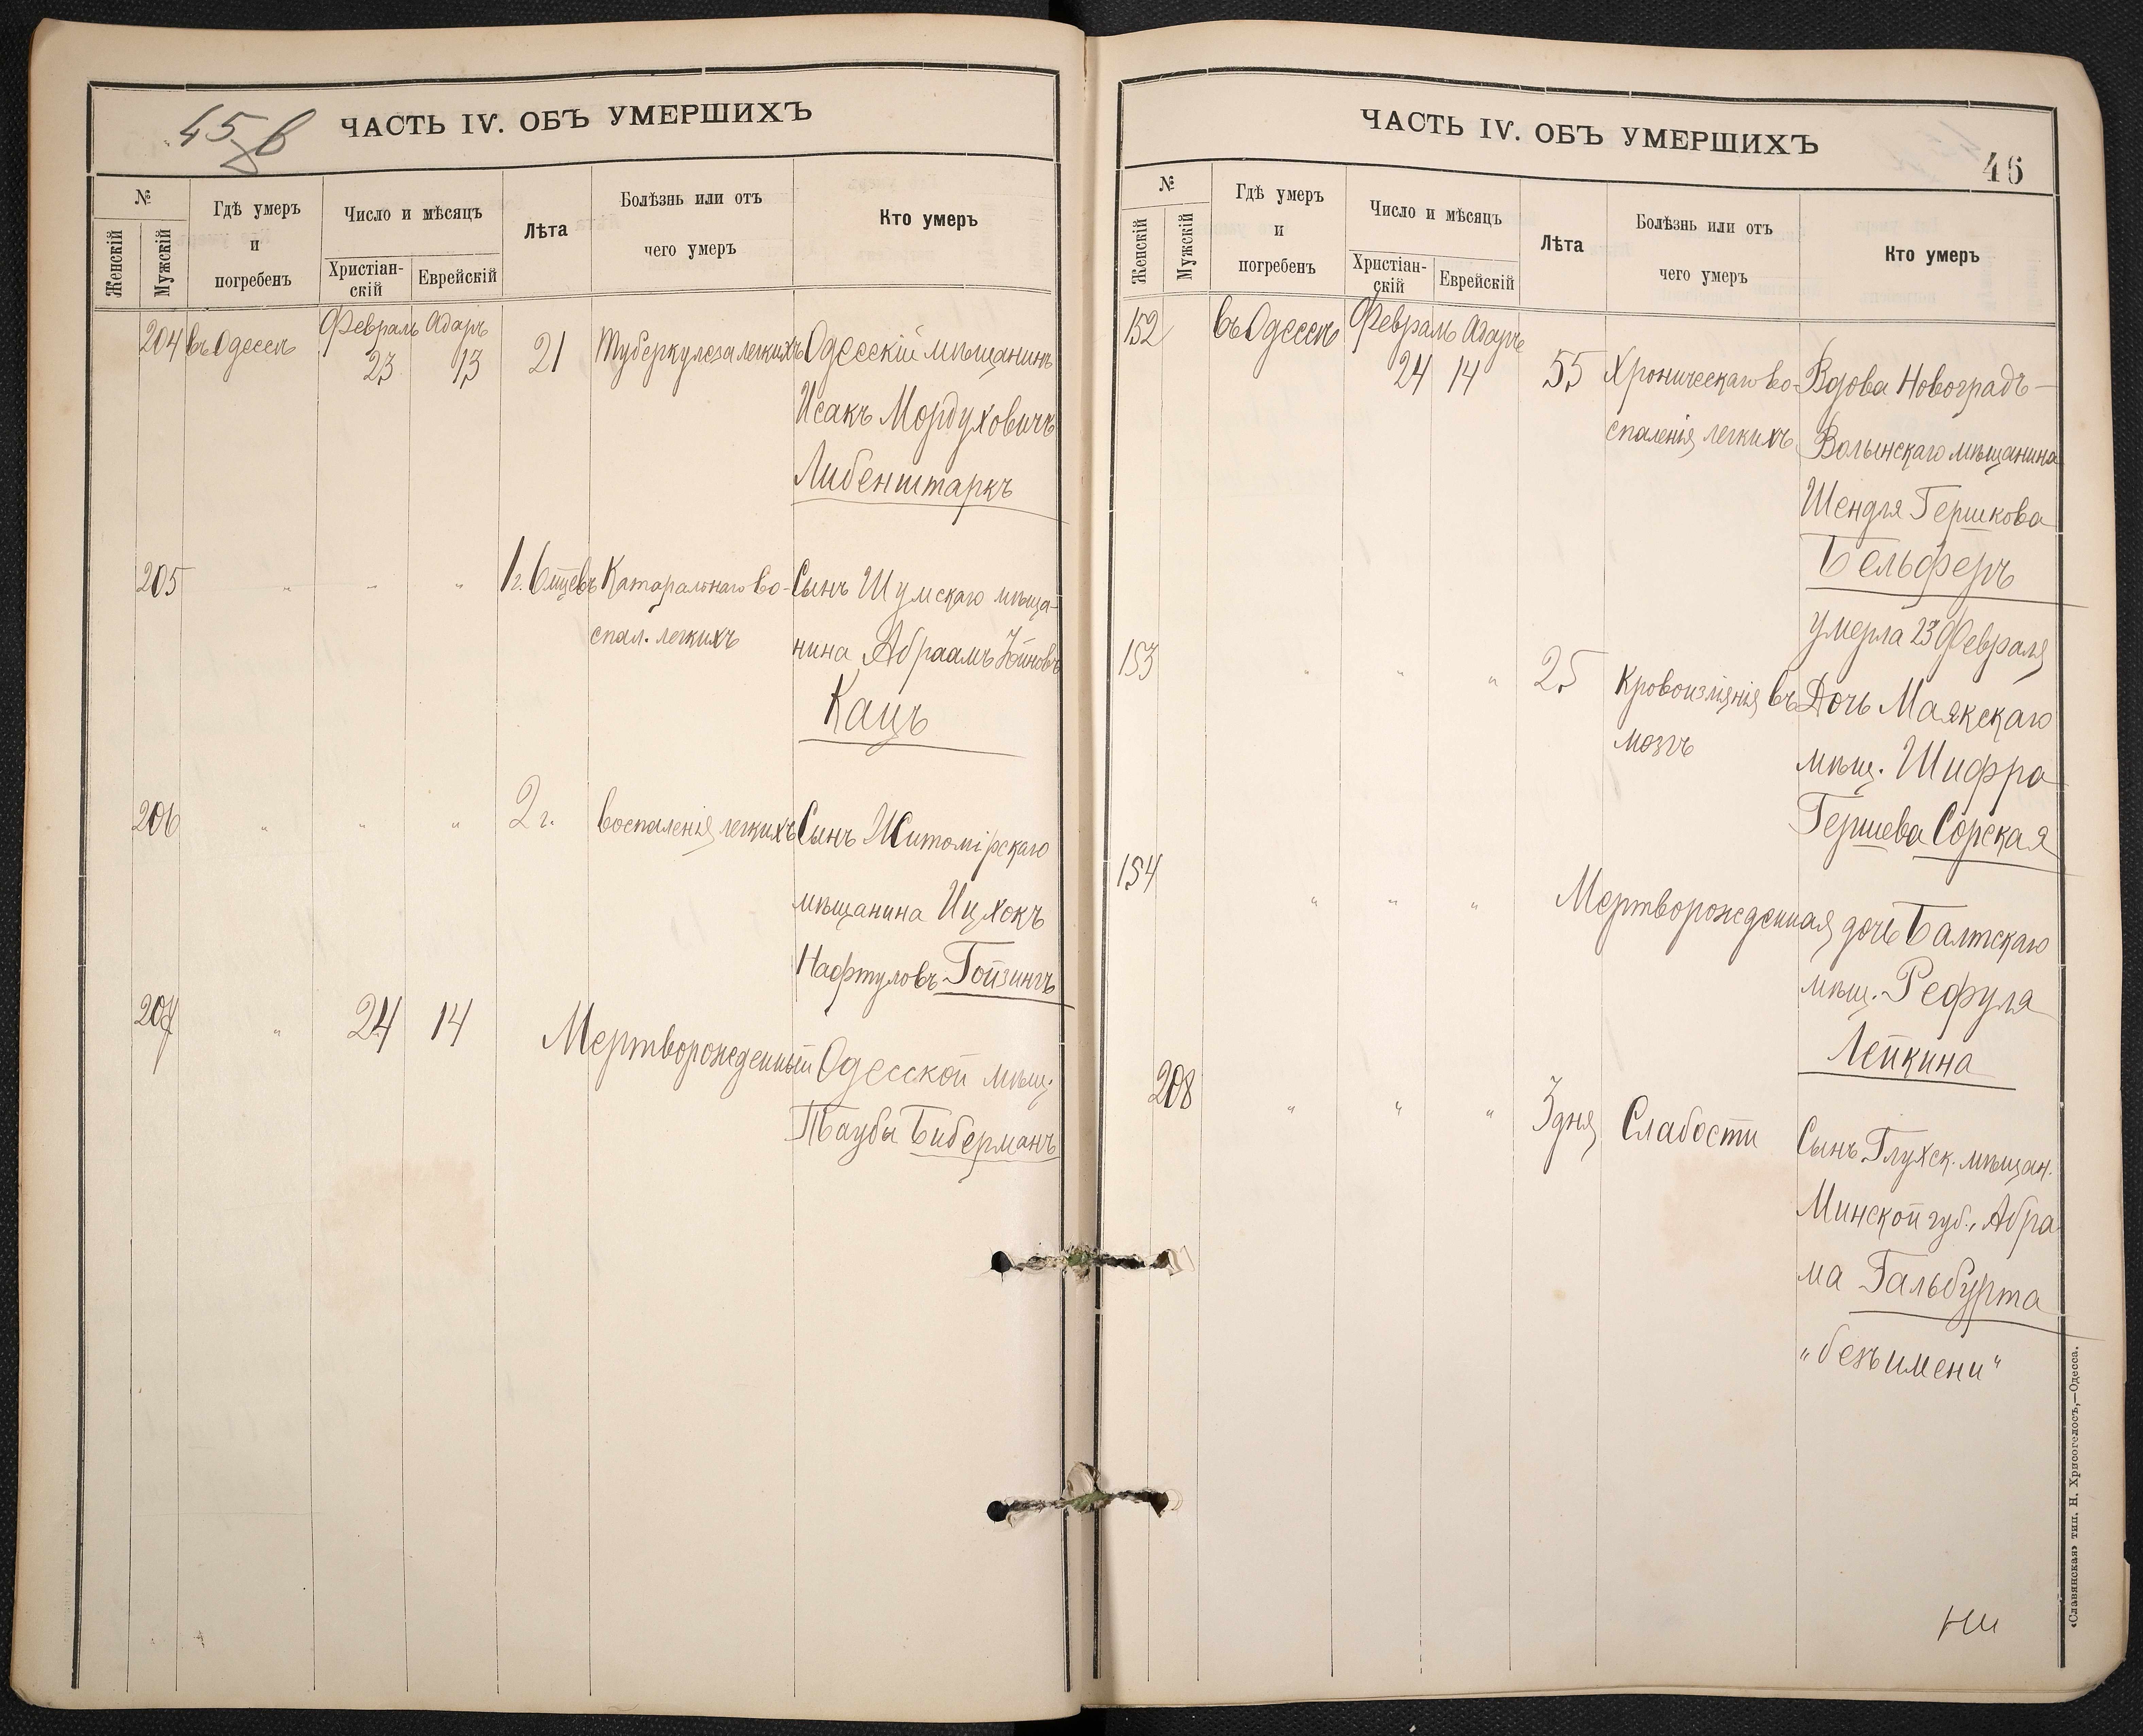 45 в
ЧАСТЬ IV. ОБЪ УМЕРШИХЪ
№
Женскій
Мужскій
Гдѣ умеръ
и
погребенъ
Число и мѣсяцъ
Христіан-
скій
Еврейскій
Лѣта
Болѣзнь или отъ
чего умеръ
Кто умеръ
204 въ Одессѣ Февраль Адаръ
23 13 21 Туберкулеза легкихъ Одесскій мѣщанинъ
Исакъ Мордуховичъ
Либенштаркъ
205 " " " 1 г. 6 мцевъ Катаральнаго во- Сынъ Шумскаго мѣща-
спал. легкихъ нина Абраамъ
Кацъ
206 " " " 2 г. воспаленія легкихъ Сынъ Житомірскаго
мѣщанина Ицхокъ
Нафтуловъ Гойзингъ
207 " 24 14 Мертворожденный Одесской мѣщ.
Таубы Биберманъ
ЧАСТЬ IV. ОБЪ УМЕРШИХЪ
46
№
Женскій
Мужскій
Гдѣ умеръ
и
погребенъ
Число и мѣсяцъ
Христіан-
скій
Еврейскій
Лѣта
Болѣзнь или отъ
чего умеръ
Кто умеръ
152 въ Одессѣ Февраль Адаръ
24 14 55 Хроническаго во- Вдова Новоградъ-
спаленія легкихъ Волынскаго мѣщанина
Шендля Гершкова
Бельферъ
умерла 23 Февраля
153 " " " 25 Кровоизліянія въ Дочь Маякскаго
мозгъ мѣщ. Шифра
Гершева Сорская
154 " " " Мертворожденная дочь Балтскаго
мѣщ. Рефуля
Лейкина
208 " " " 3 дня Слабости Сынъ Глухск. мѣщан.
Минской губ., Абра
ма Гальбурта
„безъ имени“
«Славянская» тип. Н. Хрисогелосъ,—Одесса.